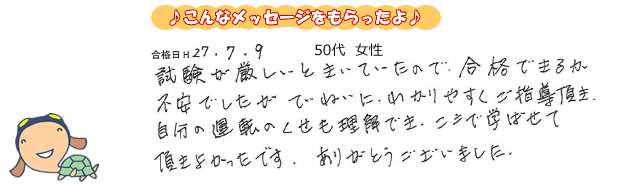 ♪こんなメッセージをもらったよ♪
合格日H27.7.9 50代 女性
試験が厳しいときいていたので、合格できるか
不安でしたが ていねいに、わかりやすくご指導頂き、
自分の運転のくせも理解でき、ここで学ばせて
頂きよかったです。ありがとうございました。